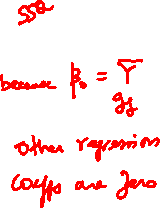 SSQ
because β₀ = Ȳ
other regression
coeffs are zero